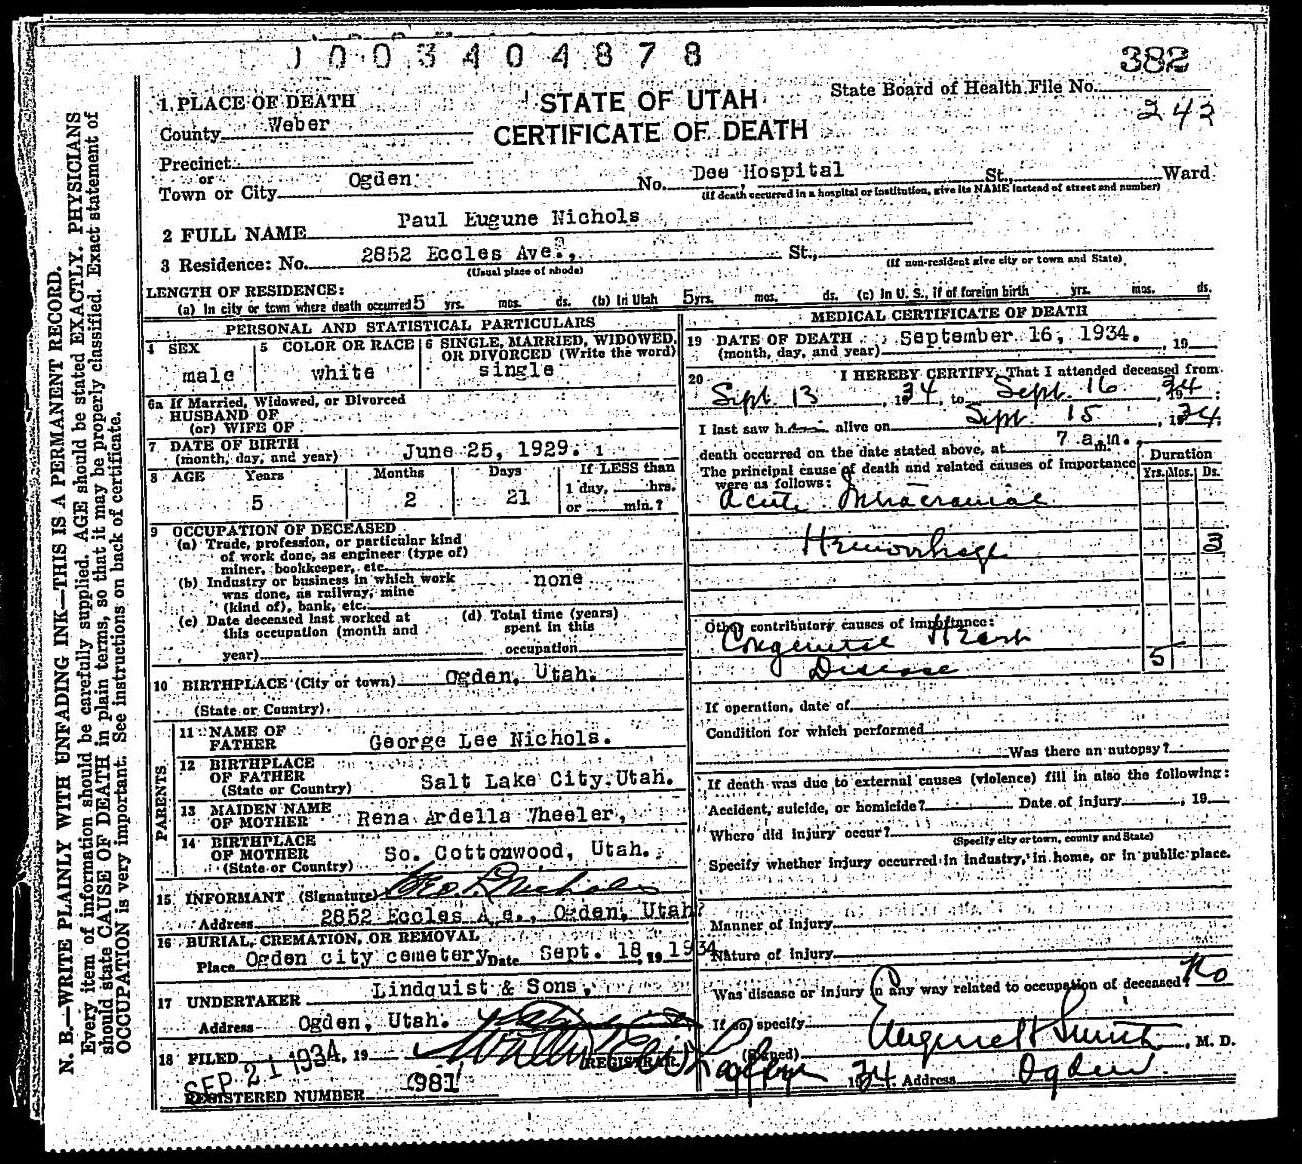 1003404878
382
STATE OF UTAH
CERTIFICATE OF DEATH
State Board of Health File No.
242
1 PLACE OF DEATH
County Weber
Precinct
or
Town or City Ogden No. Dee Hospital, St., Ward
(If death occurred in a hospital or institution, give its NAME instead of street and number)
2 FULL NAME Paul Eugune Nichols
3 Residence: No. 2852 Eccles Ave., St.,
(Usual place of abode) (If non-resident give city or town and State)
LENGTH OF RESIDENCE:
(a) In city or town where death occurred 5 yrs. mos. ds. (b) In Utah 5 yrs. mos. ds. (c) In U. S., if of foreign birth yrs. mos. ds.
PERSONAL AND STATISTICAL PARTICULARS
4 SEX
male
5 COLOR OR RACE
white
6 SINGLE, MARRIED, WIDOWED,
OR DIVORCED (Write the word)
single
6a If Married, Widowed, or Divorced
HUSBAND OF
(or) WIFE OF
7 DATE OF BIRTH
(month, day, and year) June 25, 1929.
8 AGE Years Months Days If LESS than
5 2 21 1 day, hrs.
or min.?
9 OCCUPATION OF DECEASED
(a) Trade, profession, or particular kind
of work done, as engineer (type of)
miner, bookkeeper, etc.
(b) Industry or business in which work
was done, as railway, mine
(kind of), bank, etc. none
(c) Date deceased last worked at
this occupation (month and
year)
(d) Total time (years)
spent in this
occupation
10 BIRTHPLACE (City or town) Ogden, Utah.
(State or Country)
PARENTS
11 NAME OF
FATHER George Lee Nichols.
12 BIRTHPLACE
OF FATHER
(State or Country) Salt Lake City. Utah.
13 MAIDEN NAME
OF MOTHER Rena Ardella Wheeler,
14 BIRTHPLACE
OF MOTHER
(State or Country) So. Cottonwood, Utah.
15 INFORMANT (Signature) Geo L Nichols
Address 2852 Eccles A e., Ogden, Utah
16 BURIAL, CREMATION, OR REMOVAL
Place Ogden city cemetery Date Sept. 18, 19 1934
17 UNDERTAKER Lindquist & Sons,
Address Ogden, Utah.
18 FILED SEP 21 1934, 19
(REGISTRAR)
REGISTERED NUMBER 981
MEDICAL CERTIFICATE OF DEATH
19 DATE OF DEATH
(month, day, and year) September 16, 1934. , 19
20 I HEREBY CERTIFY, That I attended deceased from
Sept. 13, 1934, to Sept. 16, 1934;
I last saw h alive on Sept 15, 1934;
death occurred on the date stated above, at 7 a.m. m.
The principal cause of death and related causes of importance
were as follows:
Duration
Yrs. Mos. Ds.
Acute Intracranial
Hemorrhage 3
Other contributory causes of importance:
Congenital Heart
Disease 5
If operation, date of
Condition for which performed
Was there an autopsy?
If death was due to external causes (violence) fill in also the following:
Accident, suicide, or homicide? Date of injury , 19
Where did injury occur?
(Specify city or town, county and State)
Specify whether injury occurred in industry, in home, or in public place.
Manner of injury
Nature of injury
Was disease or injury in any way related to occupation of deceased? No
If so, specify
(Signed) Eugene H Smith, M. D.
1934 Address Ogden
N. B.—WRITE PLAINLY WITH UNFADING INK—THIS IS A PERMANENT RECORD.
Every item of information should be carefully supplied. AGE should be stated EXACTLY. PHYSICIANS
should state CAUSE OF DEATH in plain terms, so that it may be properly classified. Exact statement of
OCCUPATION is very important. See instructions on back of certificate.